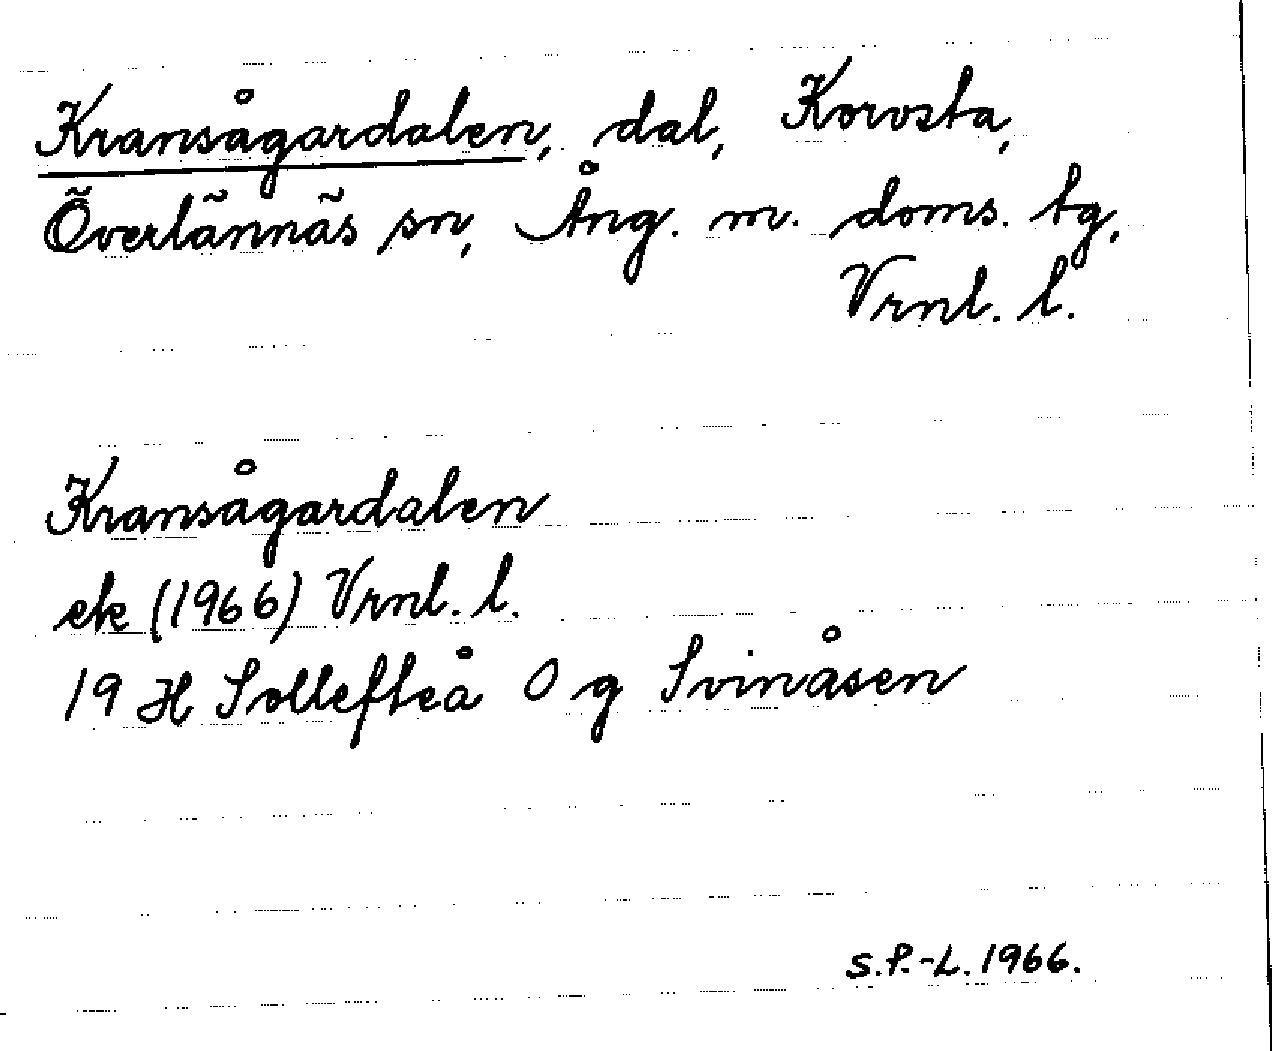 Kransågardalen, dal, Korvsta,
Överlännäs sn, Ång. m. doms. tg,
Vrnl. l.
Kransågardalen
ek (1966) Vrnl. l.
19 H Sollefteå O g Svinåsen
S.P.-L. 1966.